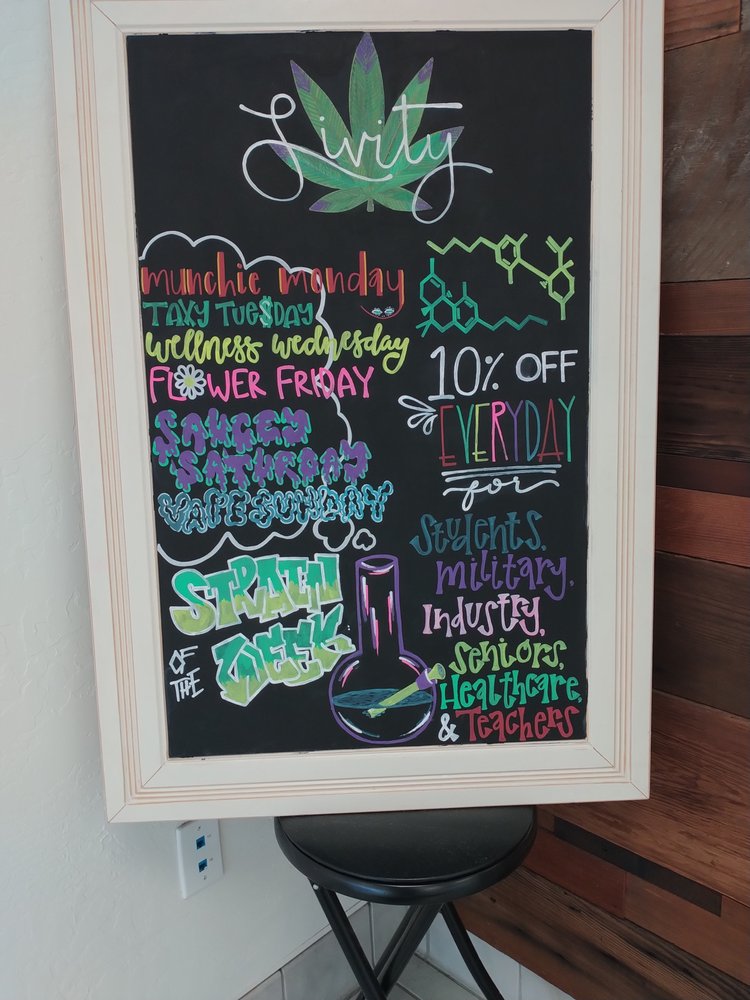 Livity
munchie monday
TAXY TUE$DAY
wellness wednesday
FLOWER FRIDAY
SAUCEY
SATURDAY
VAPE SUNDAY
STRAIN
OF THE
WEEK
10% OFF
EVERYDAY
for
Students,
military,
Industry,
Seniors,
Healthcare,
& Teachers